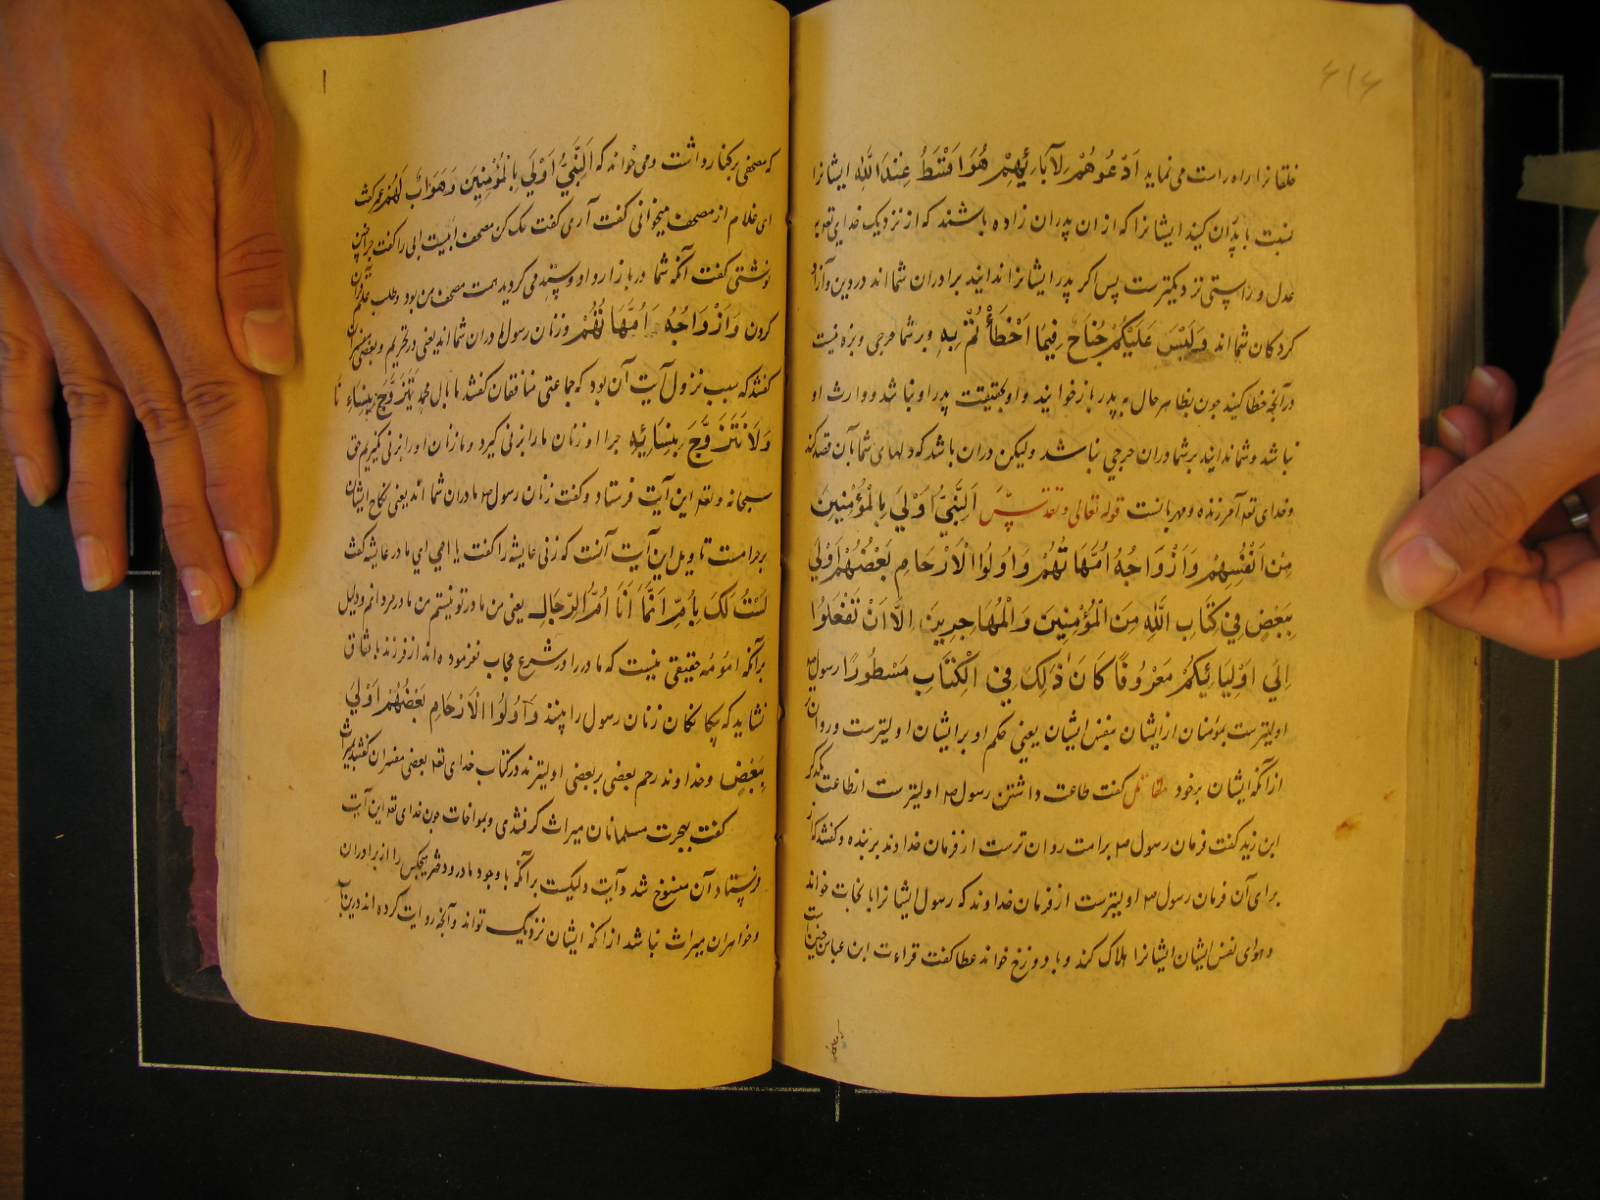 ۶۱۶
خلقانرا راه راست می نماید اُدْعُوهُمْ لِآبَائِهِمْ هُوَ اَقْسَطُ عِنْدَ اللّٰه ایشانرا
نسبت با پدران کنید ایشانرا که از ان پدران زاده باشند که از نزدیک خدای تعه به
عدل و راستی نزدیکترست پس اگر پدر ایشانرا ندانید برادران شما اند در دین و آزاد
کردکان شما اند وَلَیْسَ عَلَیْکُمْ جُنَاحٌ فِیمَا اَخْطَأْتُمْ بِهِ و بر شما حرجی و بزه نیست
در آنچه خطا کنید جون بظاهر حال به پدر باز خوانید و او بحقیقت پدر او نباشد و وارث او
نباشد و شما ندانید بر شما دران حرجی نباشد ولیکن دران باشد که دلهای شما بآن قصد کند
و خدای تعه آمرزنده و مهربانست قوله تعالی و تقدس اَلنَّبِیُّ اَوْلَی بِالْمُؤْمِنِینَ
مِنْ اَنْفُسِهِمْ وَ اَزْوَاجُهُ اُمَّهَاتُهُمْ وَ اُولُوا الْاَرْحَامِ بَعْضُهُمْ اَوْلَی
بِبَعْضٍ فِی کِتَابِ اللّٰهِ مِنَ الْمُؤْمِنِینَ وَ الْمُهَاجِرِینَ اِلَّا اَنْ تَفْعَلُوا
اِلَی اَوْلِیَائِکُمْ مَعْرُوفًا کَانَ ذٰلِکَ فِی الْکِتَابِ مَسْطُورًا رسول ص
اولیترست بمؤمنان از ایشان بنفس ایشان یعنی حکم او بر ایشان اولیترست و روان
از آنکه ایشان بر خود مقاتل کفت طاعت داشتن رسول ص اولیترست از طاعت یکدکر
ابن زید کفت فرمان رسول ص بر امت روان ترست از فرمان خداوند بر بنده و کفتند که از
برای آن فرمان رسول ص اولیترست از فرمان خداوند که رسول ایشانرا با نجات خواند
و هوای نفس ایشان ایشانرا هلاک کند و بدوزخ خواند عطا کفت قراءت ابن عباس چنین است
که مصحفی بر کنار داشت و می خواند که اَلنَّبِیُّ اَوْلَی بِالْمُؤْمِنِینَ وَ هُوَ اَبٌ لَهُمْ عمر کفت
ای غلام از مصحف میخوانی کفت آری کفت حک کن مصحف ابیست ابی را کفت چرا چنین
نوشتی کفت آنکه شما در بازار و داد و ستد می کردید همت مصحف من بود و طلب قرآن
کردن وَ اَزْوَاجُهُ اُمَّهَاتُهُمْ و زنان رسول مادران شما اند یعنی در تحریم و بعضی مفسران
کفتند که سبب نزول آیت آن بود که جماعتی منافقان کفتند ما بال محمد یَتَزَوَّجُ بِنِسَاءِنَا
وَلَا نَتَزَوَّجُ بِنِسَائِهِ چرا او زنان ما را بزنی کیرد و ما زنان او را بزنی نکیریم حق
سبحانه و تعه این آیت فرستاد و کفت زنان رسول ص مادران شما اند یعنی نکاح ایشان
بر حرامست تاویل این آیت آنست که زنی عایشه را کفت یا امی ای مادر عایشه کفت
لَسْتُ لَکَ بِأُمٍّ اِنَّمَا اَنَا اُمُّ الرِّجَالِ یعنی من مادر تو نیستم من مادر مردانم و دلیل
بر آنکه امومه حقیقی نیست که مادر را در شرع حجاب نفرموده اند از فرزند باتفاق
نشاید که بیکانکان زنان رسول را بینند وَ اُولُوا الْاَرْحَامِ بَعْضُهُمْ اَوْلَی
بِبَعْضٍ و خداوند رحم بعضی ببعضی اولیترند در کتاب خدای تعه بعضی مفسران کفتند میراث
کفت بهجرت مسلمانان میراث کرفتندی و بمواخات جون خدای تعه این آیت
فرستاد آن منسوخ شد و آیت دلیلست بر آنکه با وجود مادر و دختر هیچکس را از برادران
و خواهران میراث نباشد از آنکه ایشان نزدیک تراند و آنچه روایت کرده اند درین باب